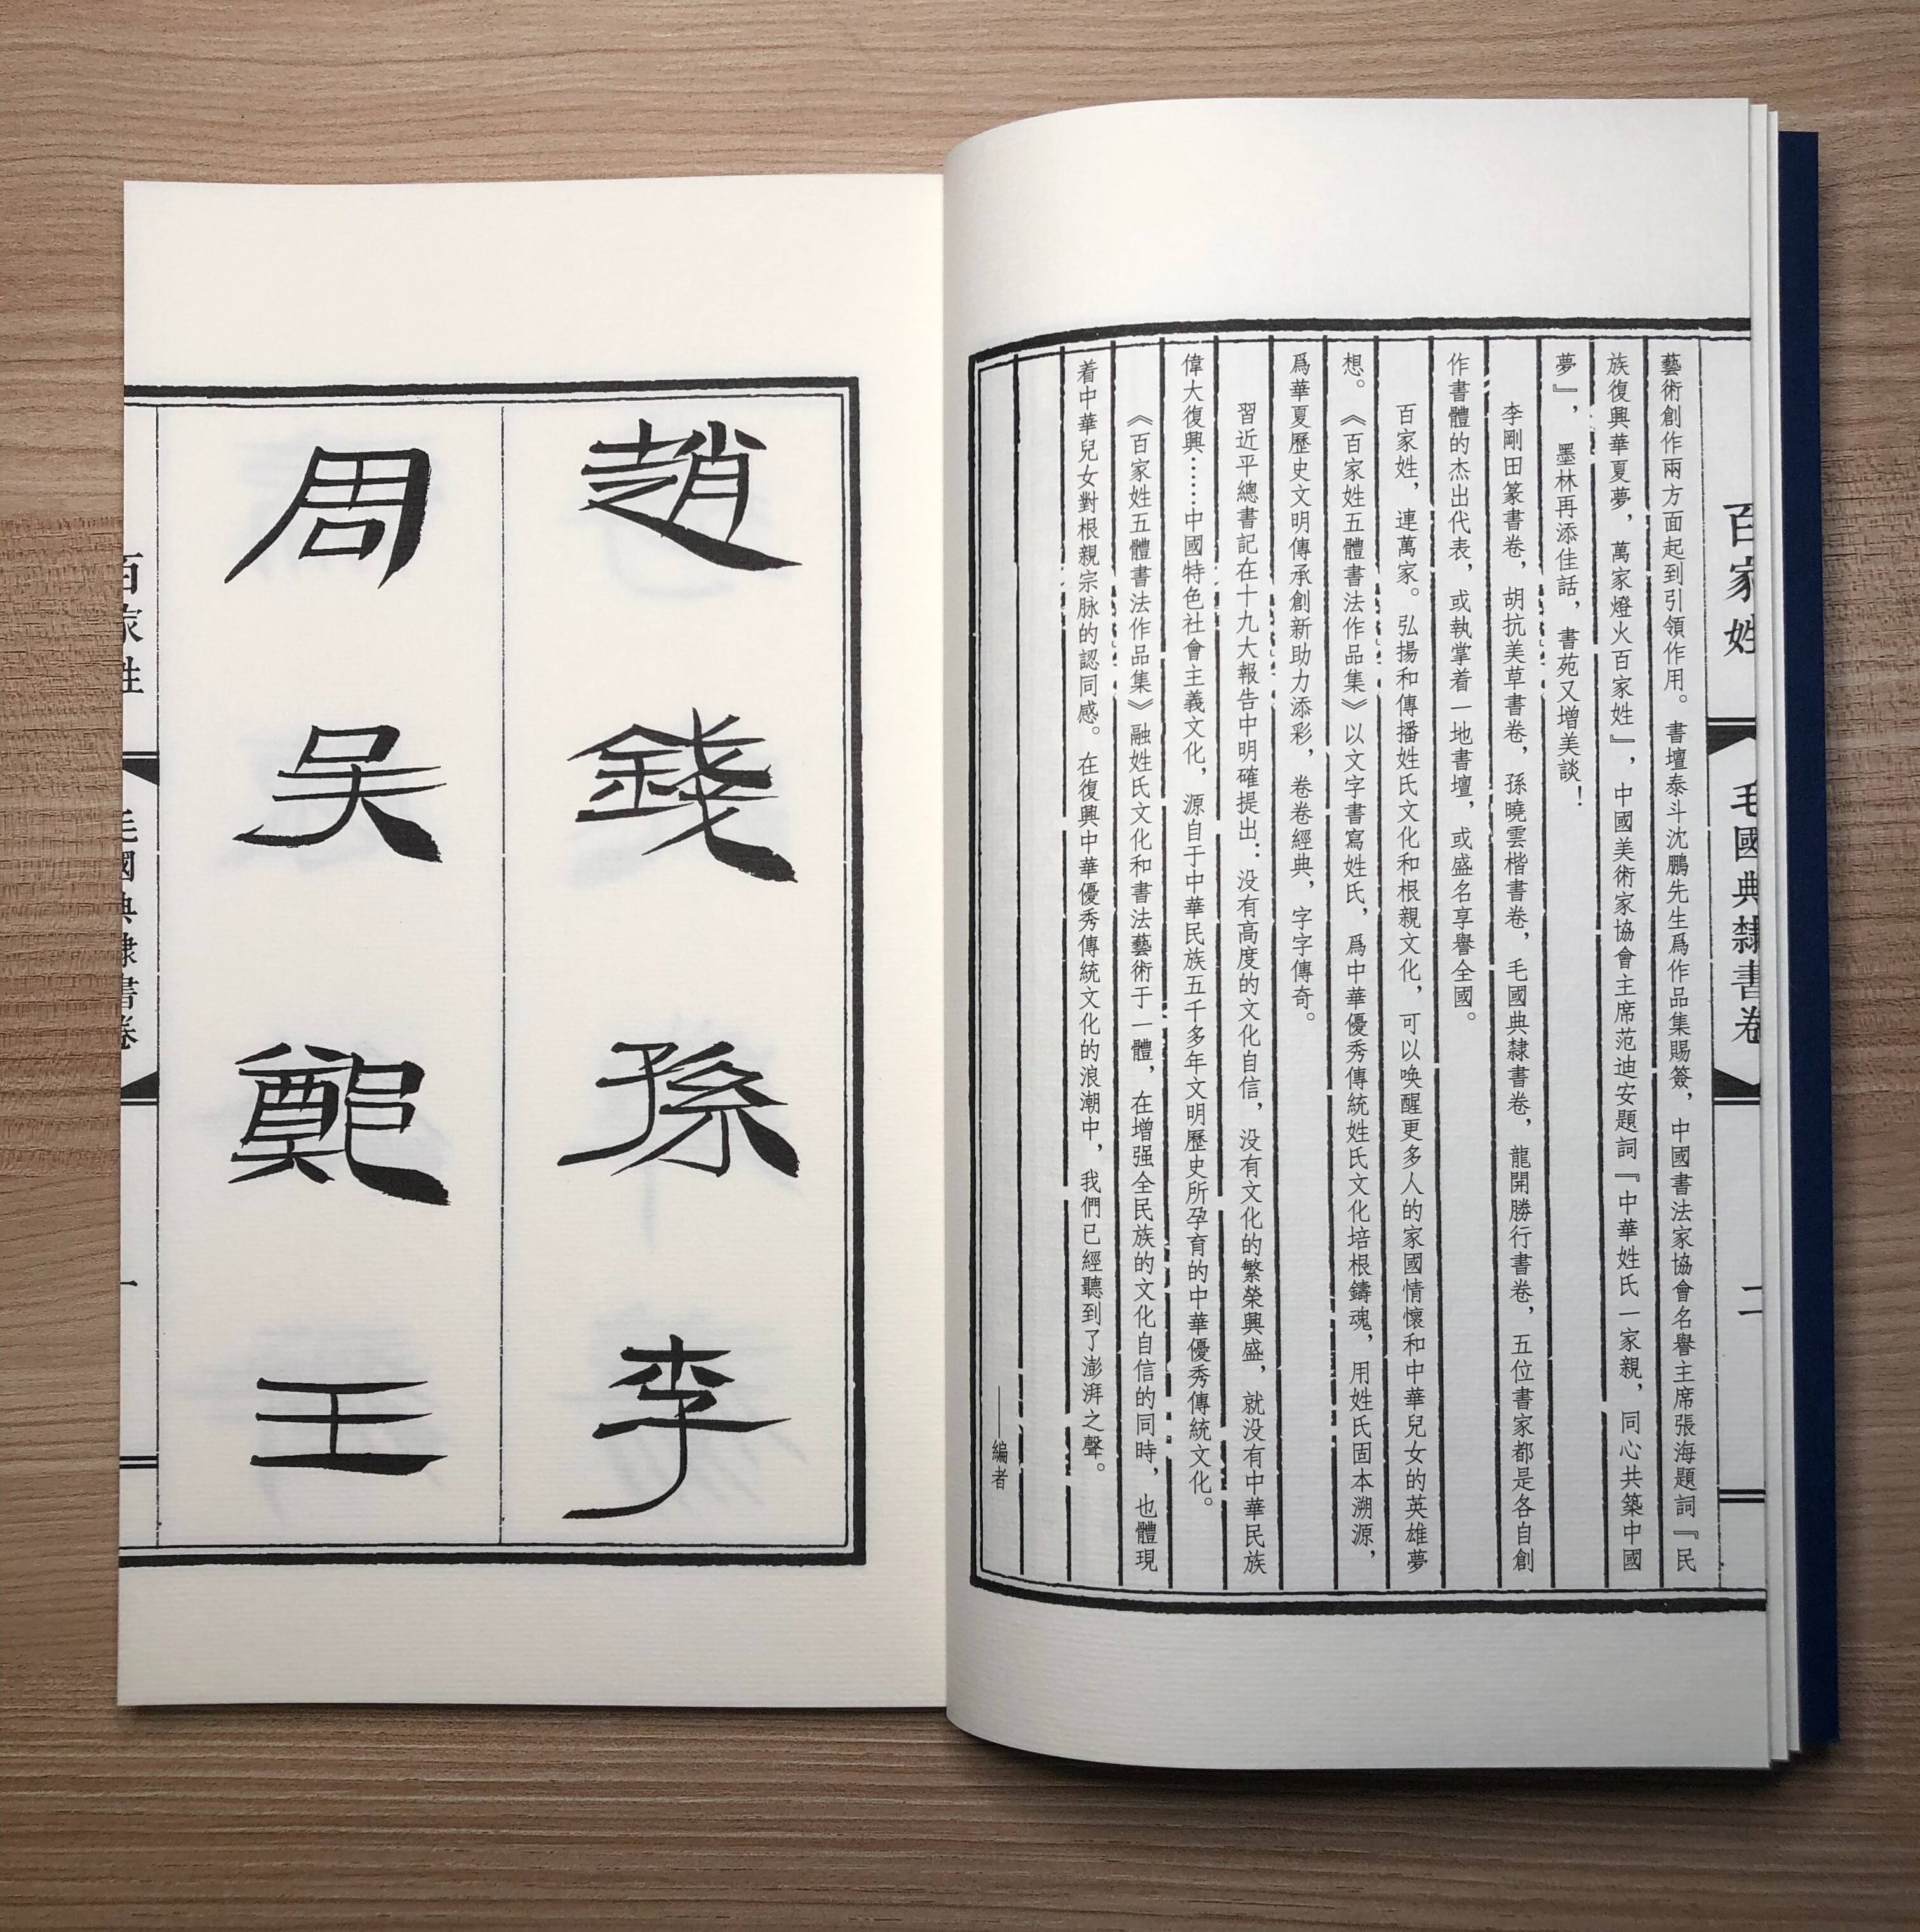 百家姓
毛國典隸書卷
二
藝術創作兩方面起到引領作用。書壇泰斗沈鵬先生爲作品集賜簽，中國書法家協會名譽主席張海題詞『民
族復興華夏夢，萬家燈火百家姓』，中國美術家協會主席范迪安題詞『中華姓氏一家親，同心共築中國
夢』，墨林再添佳話，書苑又增美談！
李剛田篆書卷，胡抗美草書卷，孫曉雲楷書卷，毛國典隸書卷，龍開勝行書卷，五位書家都是各自創
作書體的杰出代表，或執掌着一地書壇，或盛名享譽全國。
百家姓，連萬家。弘揚和傳播姓氏文化和根親文化，可以唤醒更多人的家國情懷和中華兒女的英雄夢
想。《百家姓五體書法作品集》以文字書寫姓氏，爲中華優秀傳統姓氏文化培根鑄魂，用姓氏固本溯源，
爲華夏歷史文明傳承創新助力添彩，卷卷經典，字字傳奇。
習近平總書記在十九大報告中明確提出：没有高度的文化自信，没有文化的繁榮興盛，就没有中華民族
偉大復興……中國特色社會主義文化，源自于中華民族五千多年文明歷史所孕育的中華優秀傳統文化。
《百家姓五體書法作品集》融姓氏文化和書法藝術于一體，在增强全民族的文化自信的同時，也體現
着中華兒女對根親宗脉的認同感。在復興中華優秀傳統文化的浪潮中，我們已經聽到了澎湃之聲。
——編者
趙錢孫李
周吴鄭王
百家姓
毛國典隸書卷
一